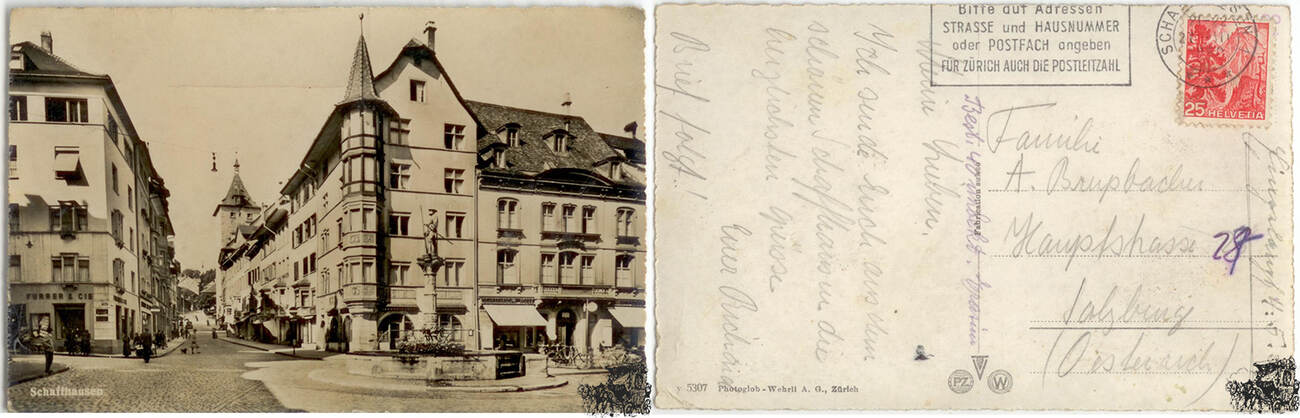 FURRER & CIE
Schaffhausen
Bitte auf Adressen
STRASSE und HAUSNUMMER
oder POSTFACH angeben
FÜR ZÜRICH AUCH DIE POSTLEITZAHL
SCHA
25 HELVETIA
Meine Lieben,
Ich sende Euch aus dem
schönen Schaffhausen die
herzlichsten Grüsse
Euer
Brief folgt!
Familie
A. Brupbacher
Hauptstrasse 28
Salzburg
(Österreich)
v 5307 Photoglob-Wehrli A. G., Zürich
PZ W